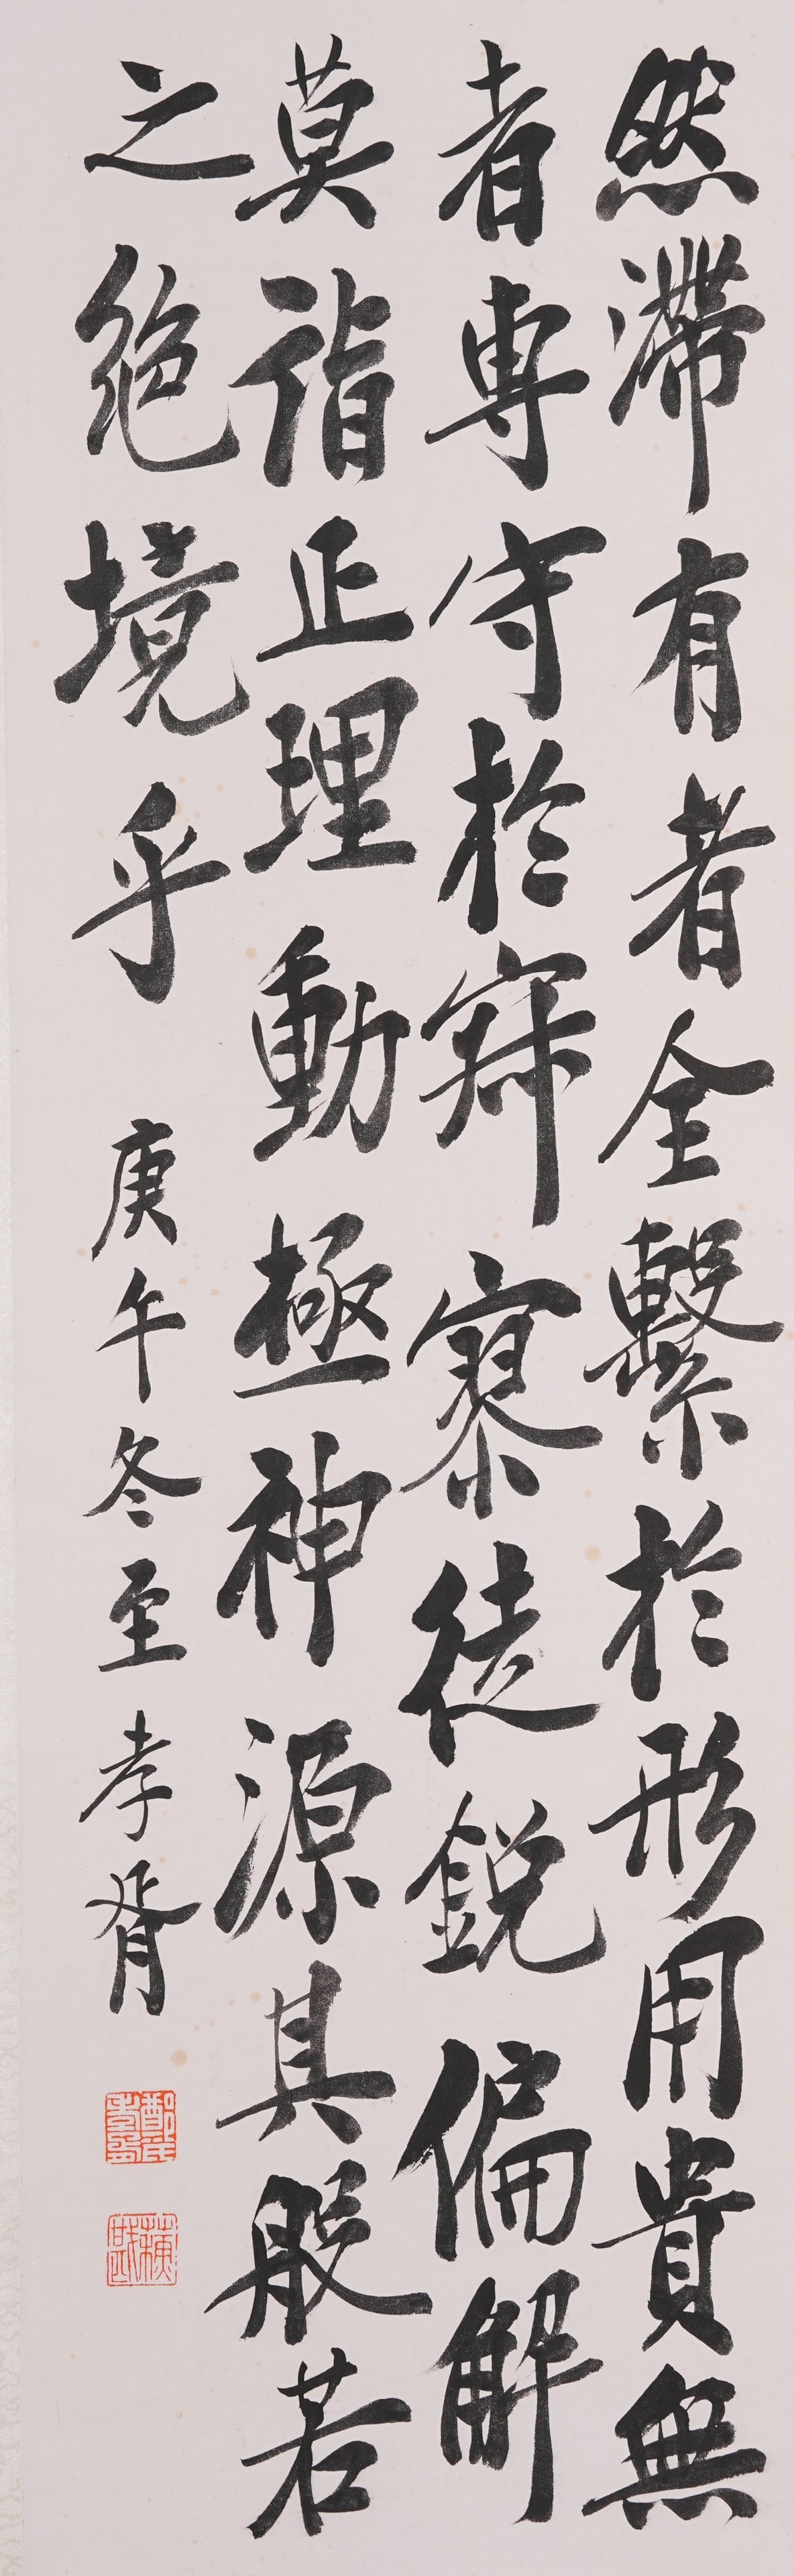 然滯有者全繫於形用貴無
者專守於寂寥徒銳偏解
莫詣正理動極神源其般若
之絕境乎 庚午冬至孝胥